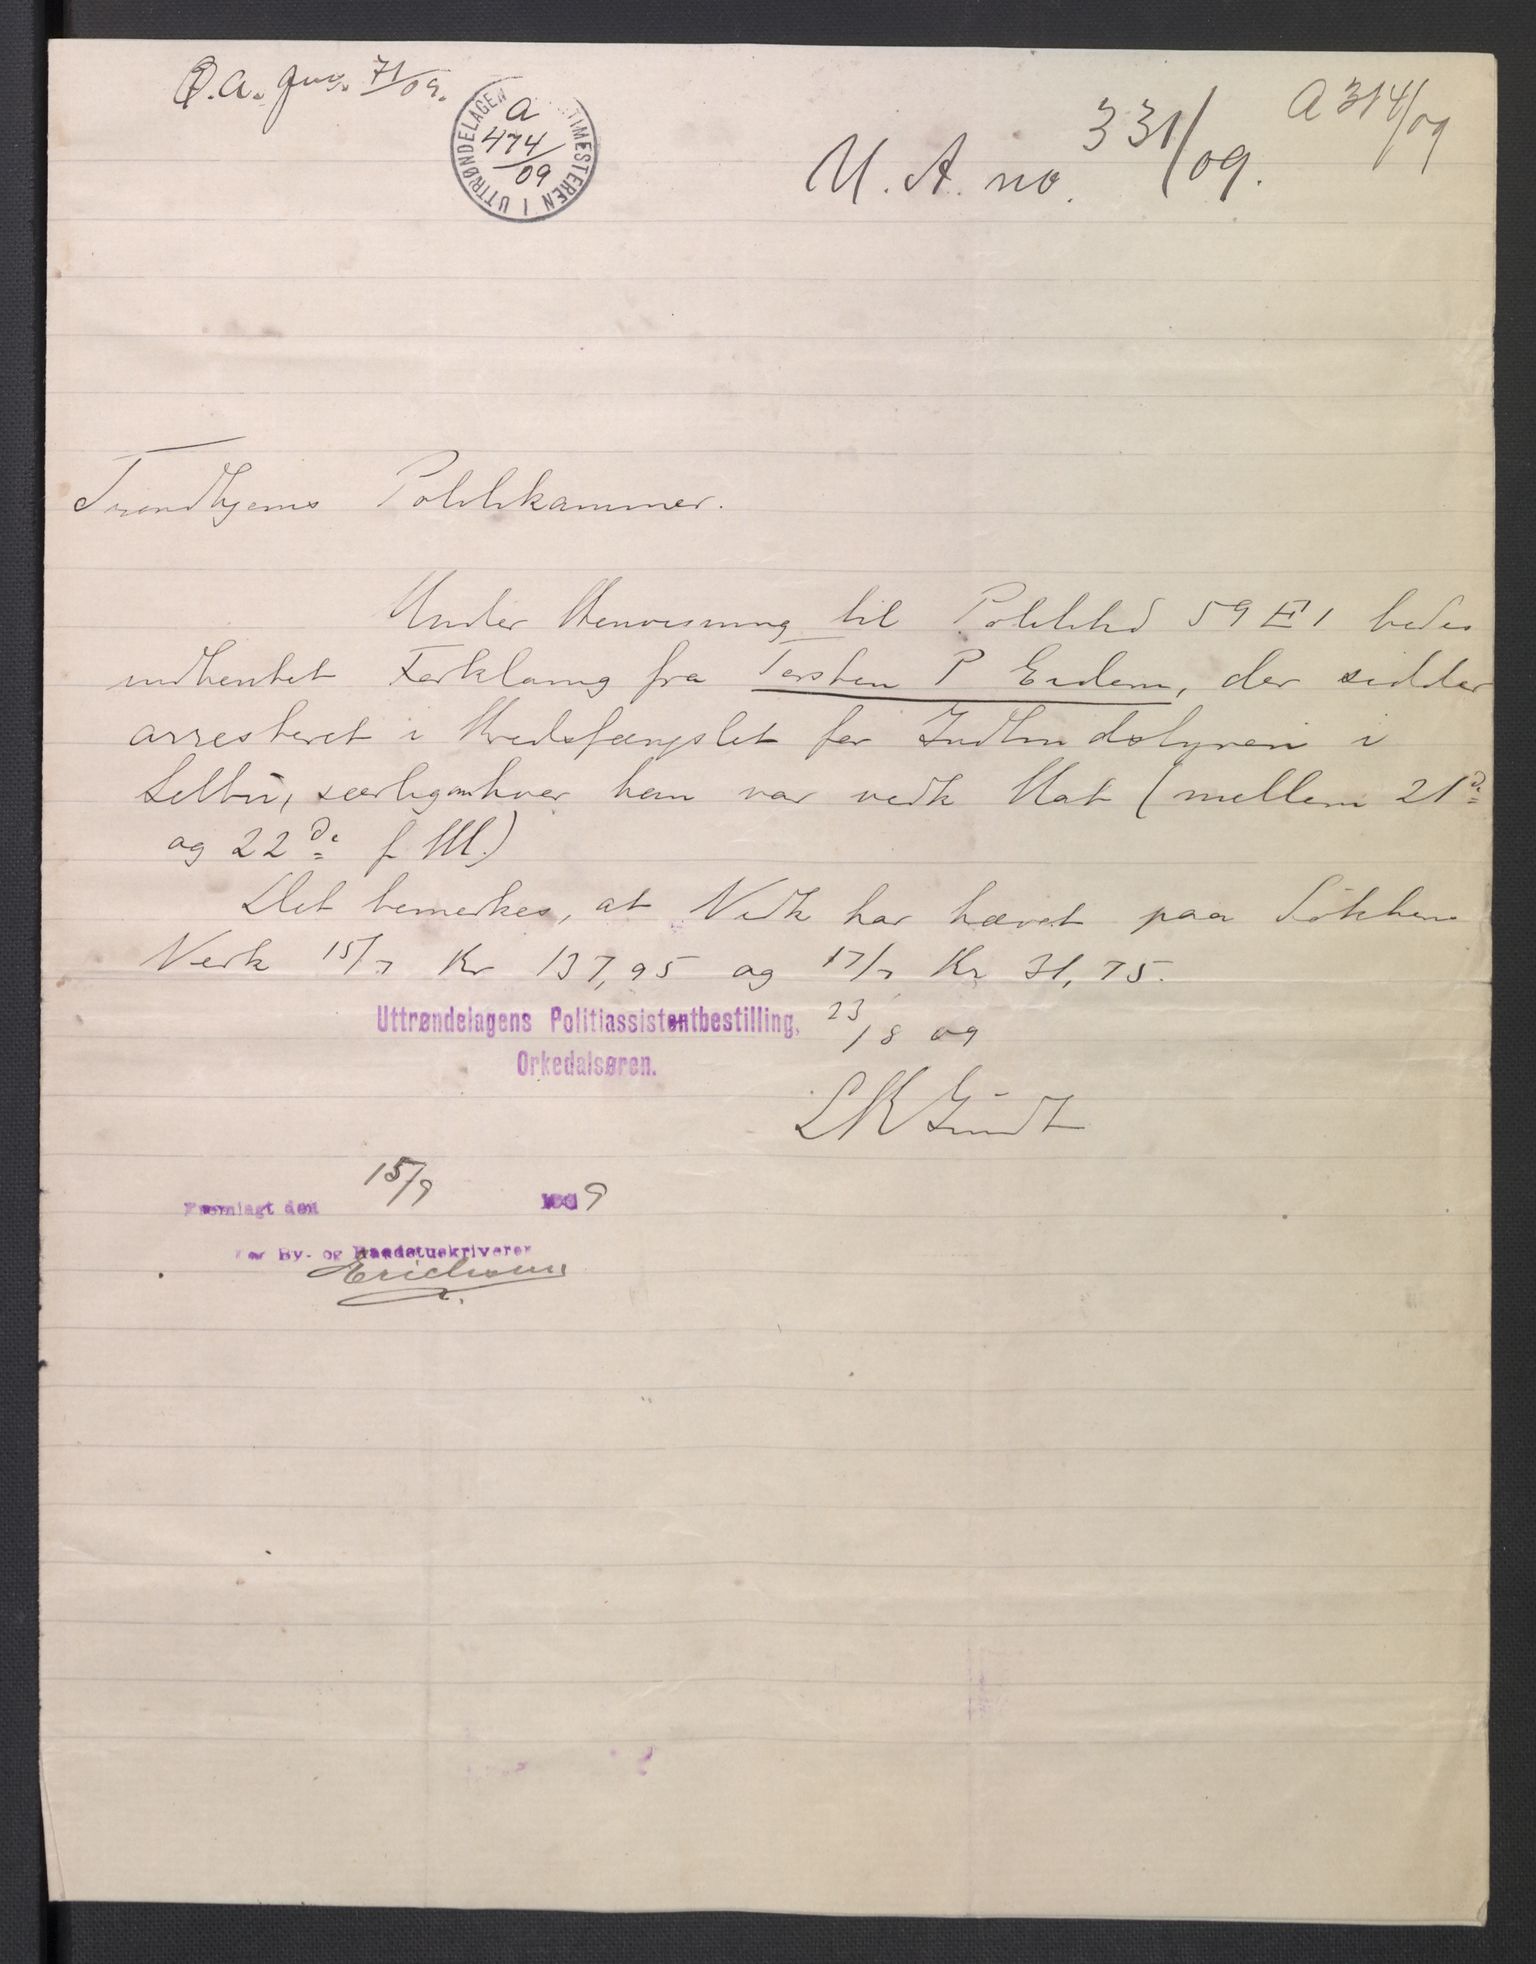 O.a. jno. 71/09.
A 314/09
U. A. no. 331/09.
POLITIMESTEREN I UTTRØNDELAGEN
a
474/09
Trondhjems Politikammer.
Under Henvisning til Polititid 59 E 1 bedes
indhentet Forklaring fra Torsten P Eidem, der sidder
arresteret i Kredsfængslet for Indbrudstyveri i
Selbu, særlig om hvor han var vedk Nat (mellem 21de
og 22de f M.)
Det bemerkes, at Vedk har hævet paa Løkkens
Verk 15/7 Kr 137,95 og 17/7 Kr 31,75.
Uttrøndelagens Politiassistentbestilling, 23/8 09
Orkedalsøren.
Fremlagt den 15/9 1909
For By- og Raadstuskriveren